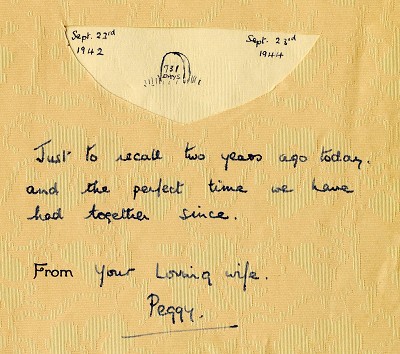 Sept. 23rd
1942
Sept. 23rd
1944
731
DAYS
Just to recall two years ago today.
and the perfect time we have
had together since.
From Your Loving wife.
Peggy.